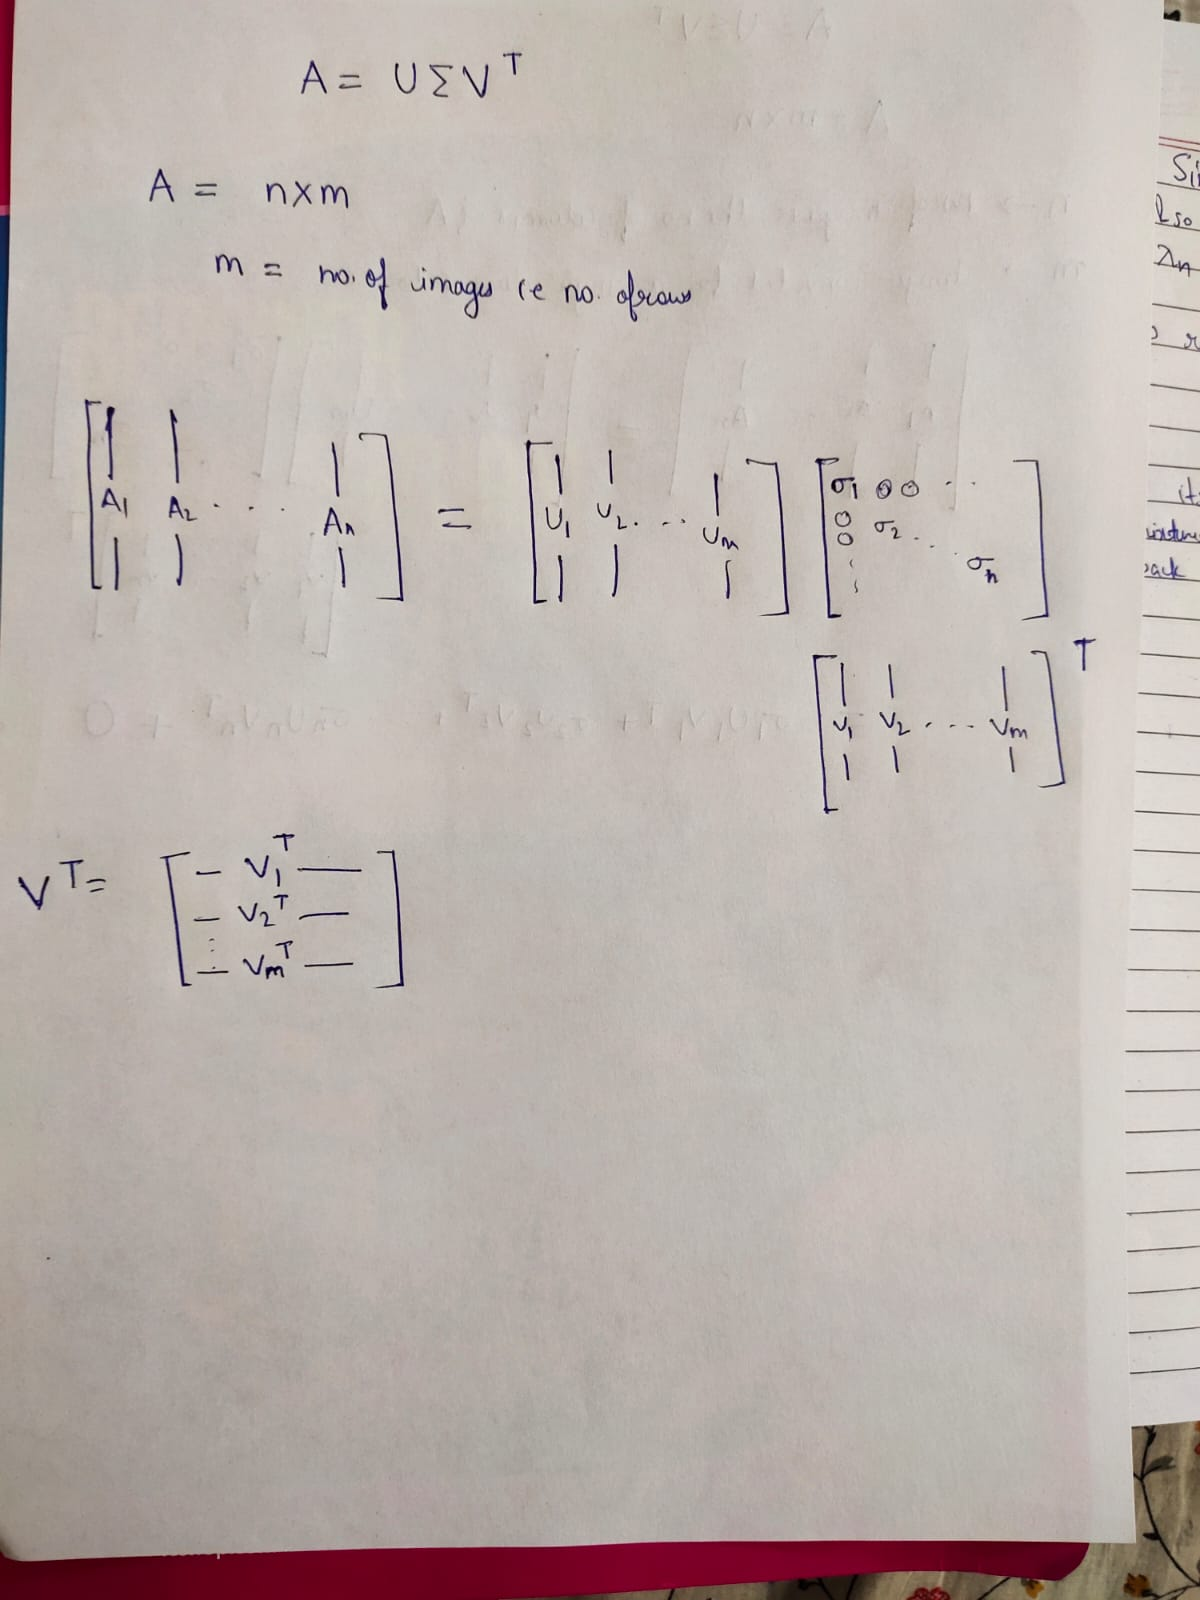 A = U Σ V T
A = n x m
m = no. of images ie no. of rows
A1 A2 . . . An = U1 U2 . . . Um σ1 0 0 . .
0 σ2 . . .
0 σn
V1 V2 . . . Vm T
V T = — V1 T —
— V2 T —
— Vm T —
Si
it